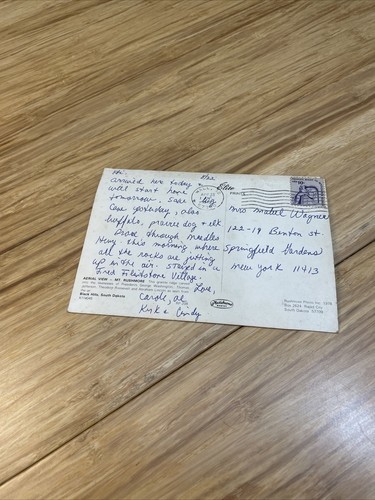 Hi:
arrived here today &
will start home
tomorrow. Saw
Cave yesterday, also
buffalo, prairie dog & elk
Drove through needles
Hiway this morning where
all the rocks are jutting
up in the air. Stayed in a
Fred Flintstone Village.
Love,
Carole, Al
Kirk & Cindy
Mrs Mabel Wagner
122-19 Benton St.
Springfield Gardens
New York 11413
AERIAL VIEW — MT. RUSHMORE
Black Hills, South Dakota
Rushmore Photo Inc.
Rapid City,
South Dakota 57709